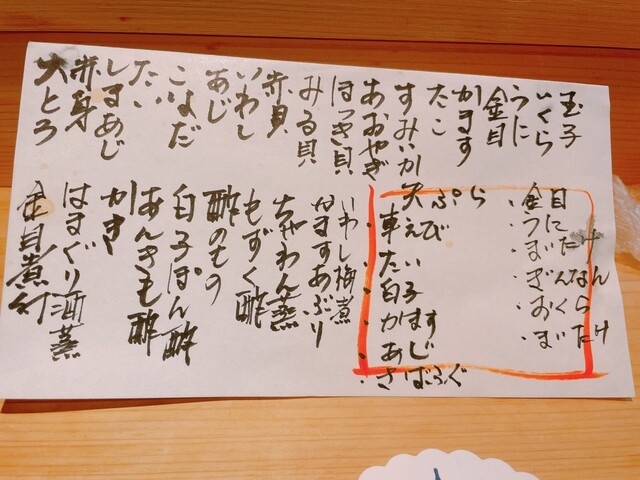 玉子
いくら
うに
金目
かます
たこ
すみいか
あおやぎ
ほっき貝
みる貝
赤貝
いわし
あじ
こはだ
たい
しまあじ
赤身
大とろ
天ぷら
・車えび
・たい
・白子
・かます
・あじ
・さばふぐ
・金目
・うに
・ぎんなん
・おくら
いわし梅煮
かますあぶり
ちゃわん蒸
もずく酢
酢のもの
白子ぽん酢
あんきも酢
かき
はまぐり酒蒸
金目煮付